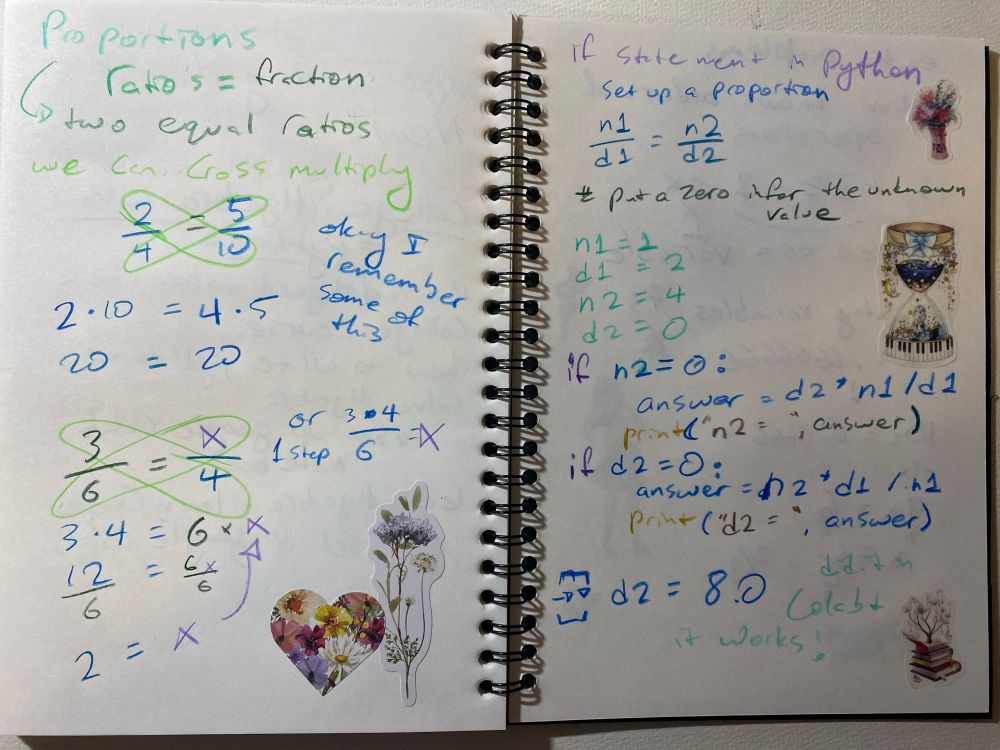 Proportions
ratio's = fraction
two equal ratios
we can cross multiply
2/4 = 5/10
okay I
remember
some of
this
2·10 = 4·5
20 = 20
3/6 = x/4
or 3·4/6 = x
1 step
3·4 = 6 * x
12/6 = 6x/6
2 = x
if statement in Python
set up a proportion
n1/d1 = n2/d2
* put a zero in for the unknown
value
n1 = 1
d1 = 2
n2 = 4
d2 = 0
if n2 = 0:
answer = d2 * n1 / d1
print("n2 = ", answer)
if d2 = 0:
answer = n2 * d1 / n1
print("d2 = ", answer)
d2 = 8.0
did it in
Colab
it works!